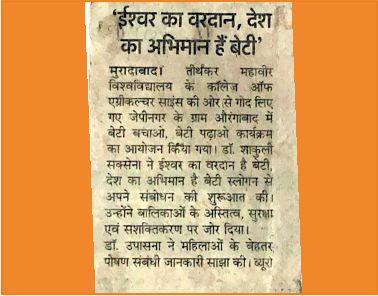 ‘ईश्वर का वरदान, देश
का अभिमान हैं बेटी’
मुरादाबाद। तीर्थंकर महावीर
विश्वविद्यालय के कॉलेज ऑफ
एग्रीकल्चर साइंस की ओर से गोद लिए
गए जेपीनगर के ग्राम औरंगाबाद में
बेटी बचाओ, बेटी पढ़ाओ कार्यक्रम
का आयोजन किया गया। डॉ. शाकुली
सक्सेना ने ईश्वर का वरदान है बेटी,
देश का अभिमान है बेटी स्लोगन से
अपने संबोधन की शुरूआत की।
उन्होंने बालिकाओं के अस्तित्व, सुरक्षा
एवं सशक्तिकरण पर जोर दिया।
डॉ. उपासना ने महिलाओं के बेहतर
पोषण संबंधी जानकारी साझा की। ब्यूरो